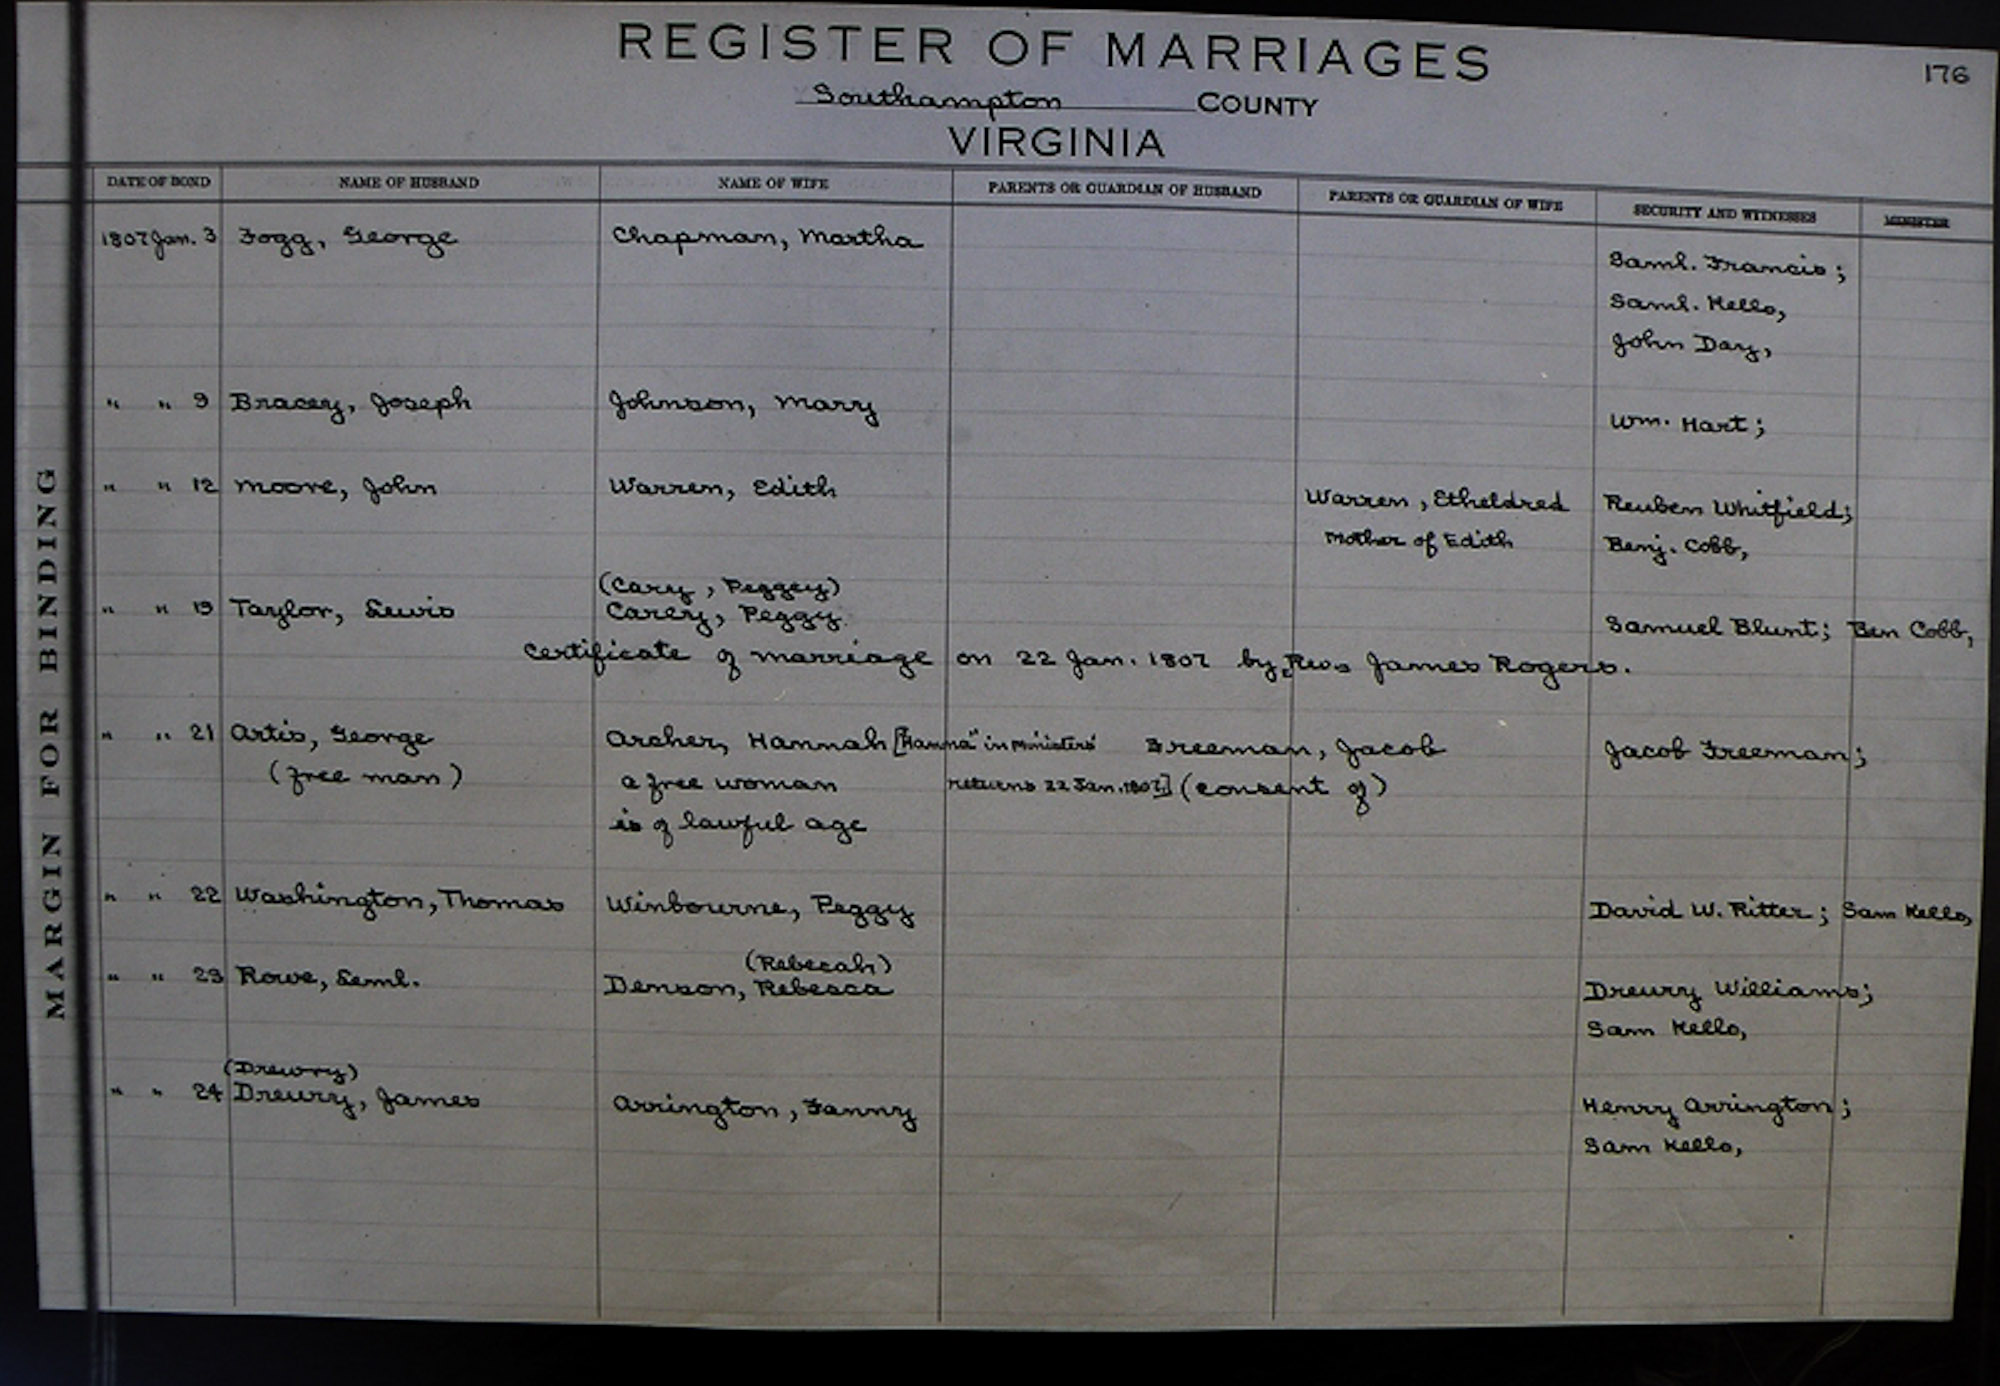 REGISTER OF MARRIAGES
176
Southampton COUNTY
VIRGINIA
MARGIN FOR BINDING
DATE OF BOND NAME OF HUSBAND NAME OF WIFE PARENTS OR GUARDIAN OF HUSBAND PARENTS OR GUARDIAN OF WIFE SECURITY AND WITNESSES MINISTER
1807 Jan. 3 Fogg, George Chapman, Martha
Saml. Francis;
Saml. Kello,
John Day,
" " 9 Bracey, Joseph Johnson, Mary
Wm. Hart;
" " 12 Moore, John Warren, Edith Warren, Etheldred Reuben Whitfield;
Mother of Edith Benj. Cobb,
(Cary, Peggey)
" " 19 Taylor, Lewis Carey, Peggy Samuel Blunt; Ben Cobb,
Certificate of marriage on 22 Jan. 1807 by James Rogers.
" " 21 Artis, George Archer, Hannah ["Hanna" in Ministers' Freeman, Jacob Jacob Freeman;
(free man) a free woman returns 22 Jan. 1807] (consent of)
is of lawful age
" " 22 Washington, Thomas Winbourne, Peggy David W. Ritter; Sam Kello,
(Rebecah)
" " 23 Rowe, Seml. Denson, Rebecca Drewry Williams;
Sam Kello,
(Drewry)
" " 24 Dreury, James Arrington, Fanny Henry Arrington;
Sam Kello,